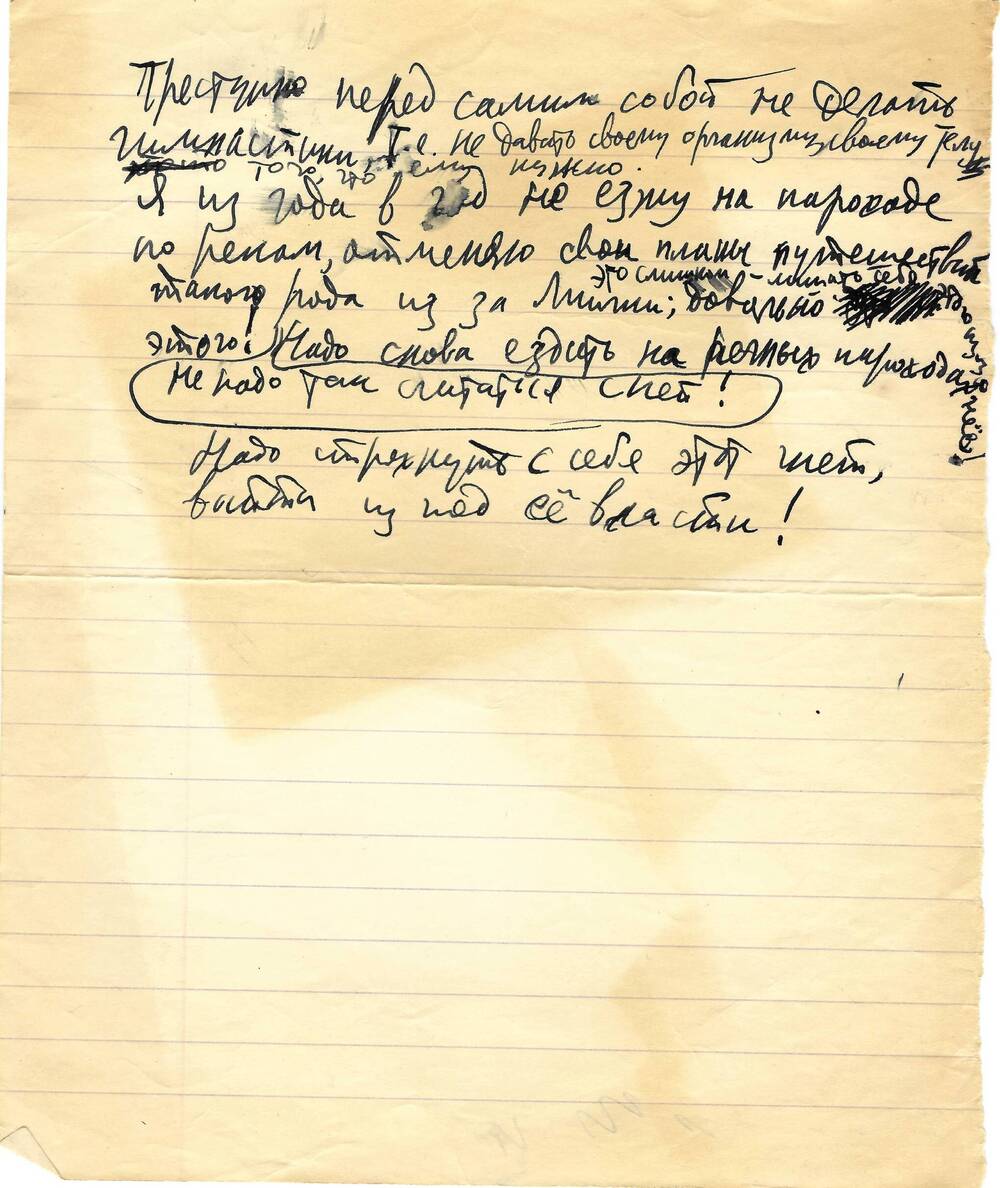 Преступно перед самим собой не делать
гимнастики, т.е. не давать своему организму, своему телу
того, что ему нужно.
Я из года в год не езжу на пароходе
по рекам, отменяю свои планы путешествий
это слишком – лишать себя этого из за неё!
такого рода из за Лилии; довольно
этого! Надо снова ездить на речных пароходах
Не надо так считаться с ней!
Надо стряхнуть с себя этот гнет,
выйти из под её власти!